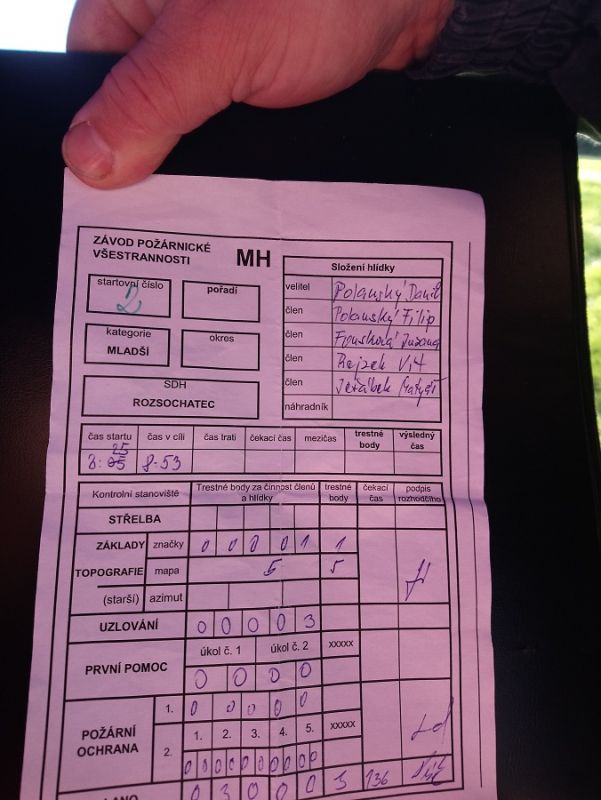 ZÁVOD POŽÁRNICKÉ
VŠESTRANNOSTI
MH
startovní číslo
2
pořadí
kategorie
MLADŠÍ
okres
SDH
ROZSOCHATEC
Složení hlídky
velitel Polanský Daniel
člen Polanský Filip
člen Zuzana
člen Rejzek Vít
člen Jeřábek Matyáš
náhradník
čas startu čas v cíli čas trati čekací čas mezičas trestné body výsledný čas
8:25 8-53
Kontrolní stanoviště Trestné body za činnost členů a hlídky trestné body čekací čas podpis rozhodčího
STŘELBA
ZÁKLADY značky 0 0 0 0 1 1
TOPOGRAFIE mapa 5 5
(starší) azimut
UZLOVÁNÍ 0 0 0 0 3
úkol č. 1 úkol č. 2 xxxxx
PRVNÍ POMOC 0 0 0 0
POŽÁRNÍ OCHRANA
1. 0 0 0 0
1. 2. 3. 4. 5. xxxxx
2. 0 0 0 0 0 0 0 0 0 0
LANO 0 3 0 0 0 3 136